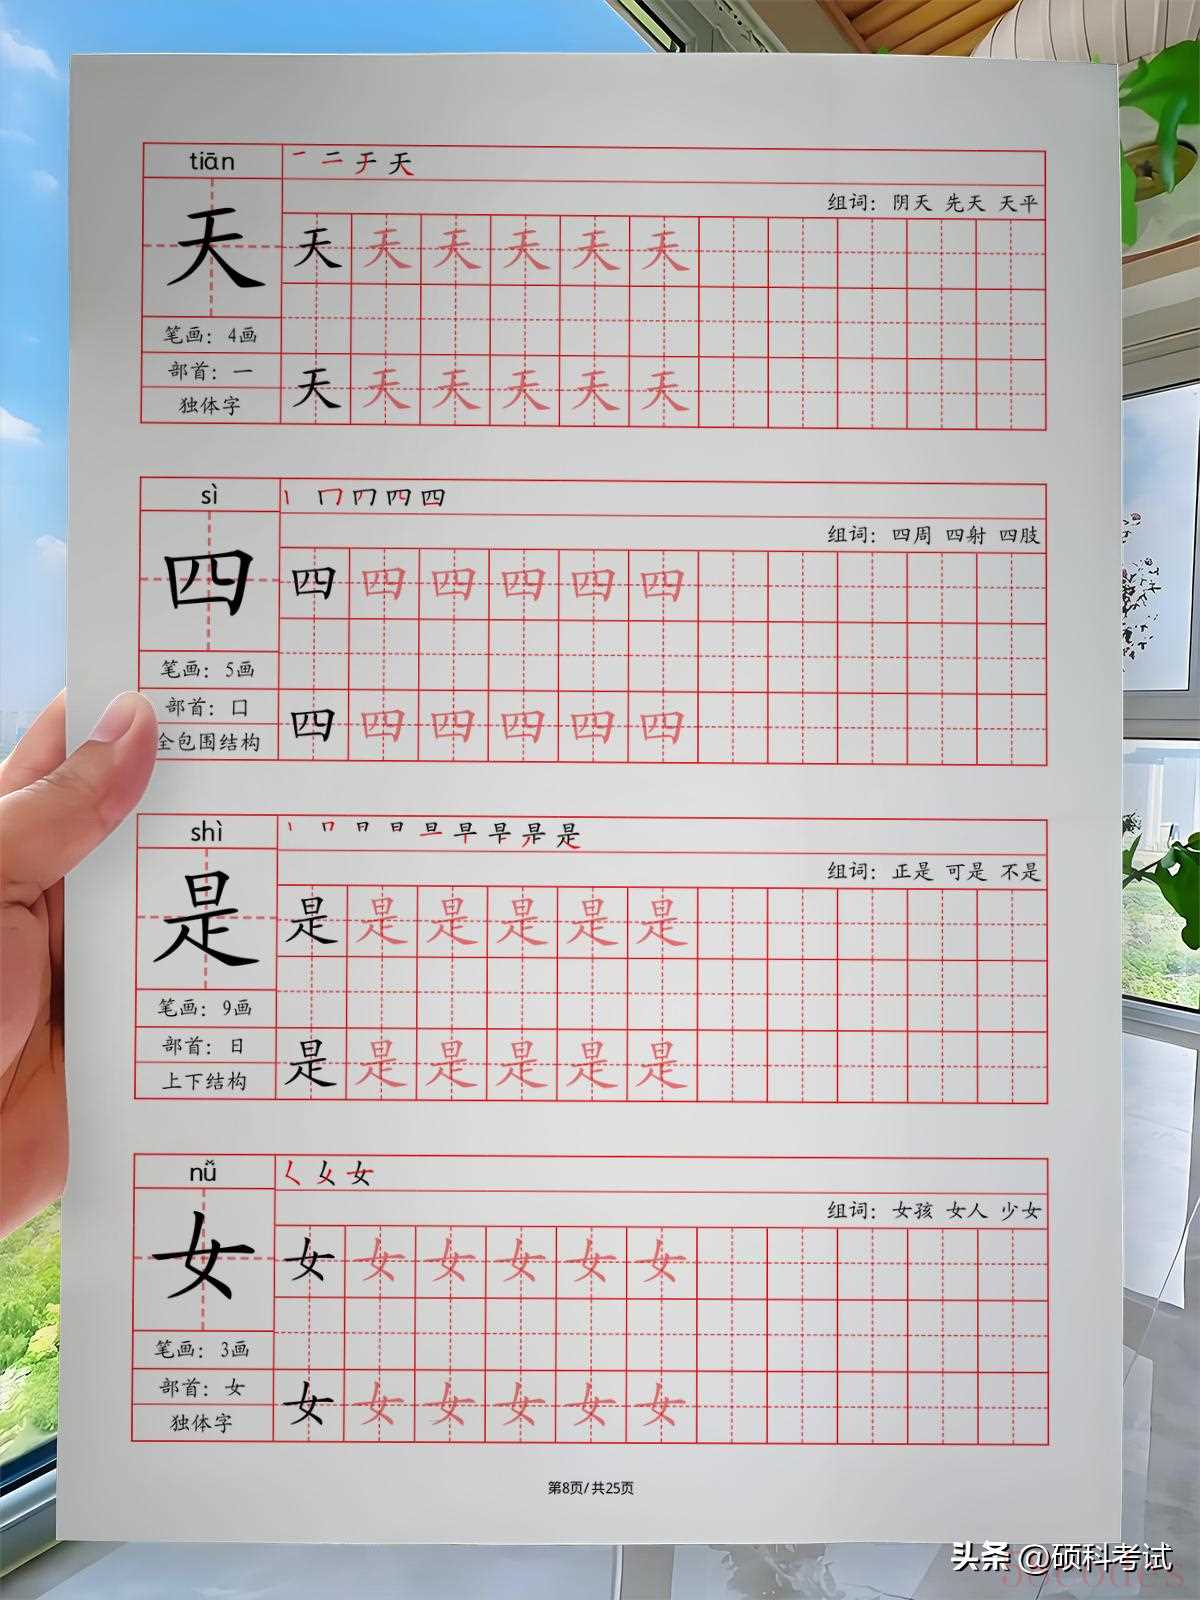 tiān
一 二 于 天
组词： 阴天 先天 天平
天
天 天 天 天 天 天
笔画： 4画
部首： 一
天 天 天 天 天 天
独体字
sì
丨 冂 四 四
组词： 四周 四射 四肢
四
四 四 四 四 四 四
笔画： 5画
部首： 口
四 四 四 四 四 四
全包围结构
shì
丨 冂 日 日 旦 早 是
组词： 正是 可是 不是
是
是 是 是 是 是 是
笔画： 9画
部首： 日
是 是 是 是 是 是
上下结构
nǚ
く 女 女
组词： 女孩 女人 少女
女
女 女 女 女 女 女
笔画： 3画
部首： 女
女 女 女 女 女 女
独体字
第8页/共25页
头条 @硕科考试